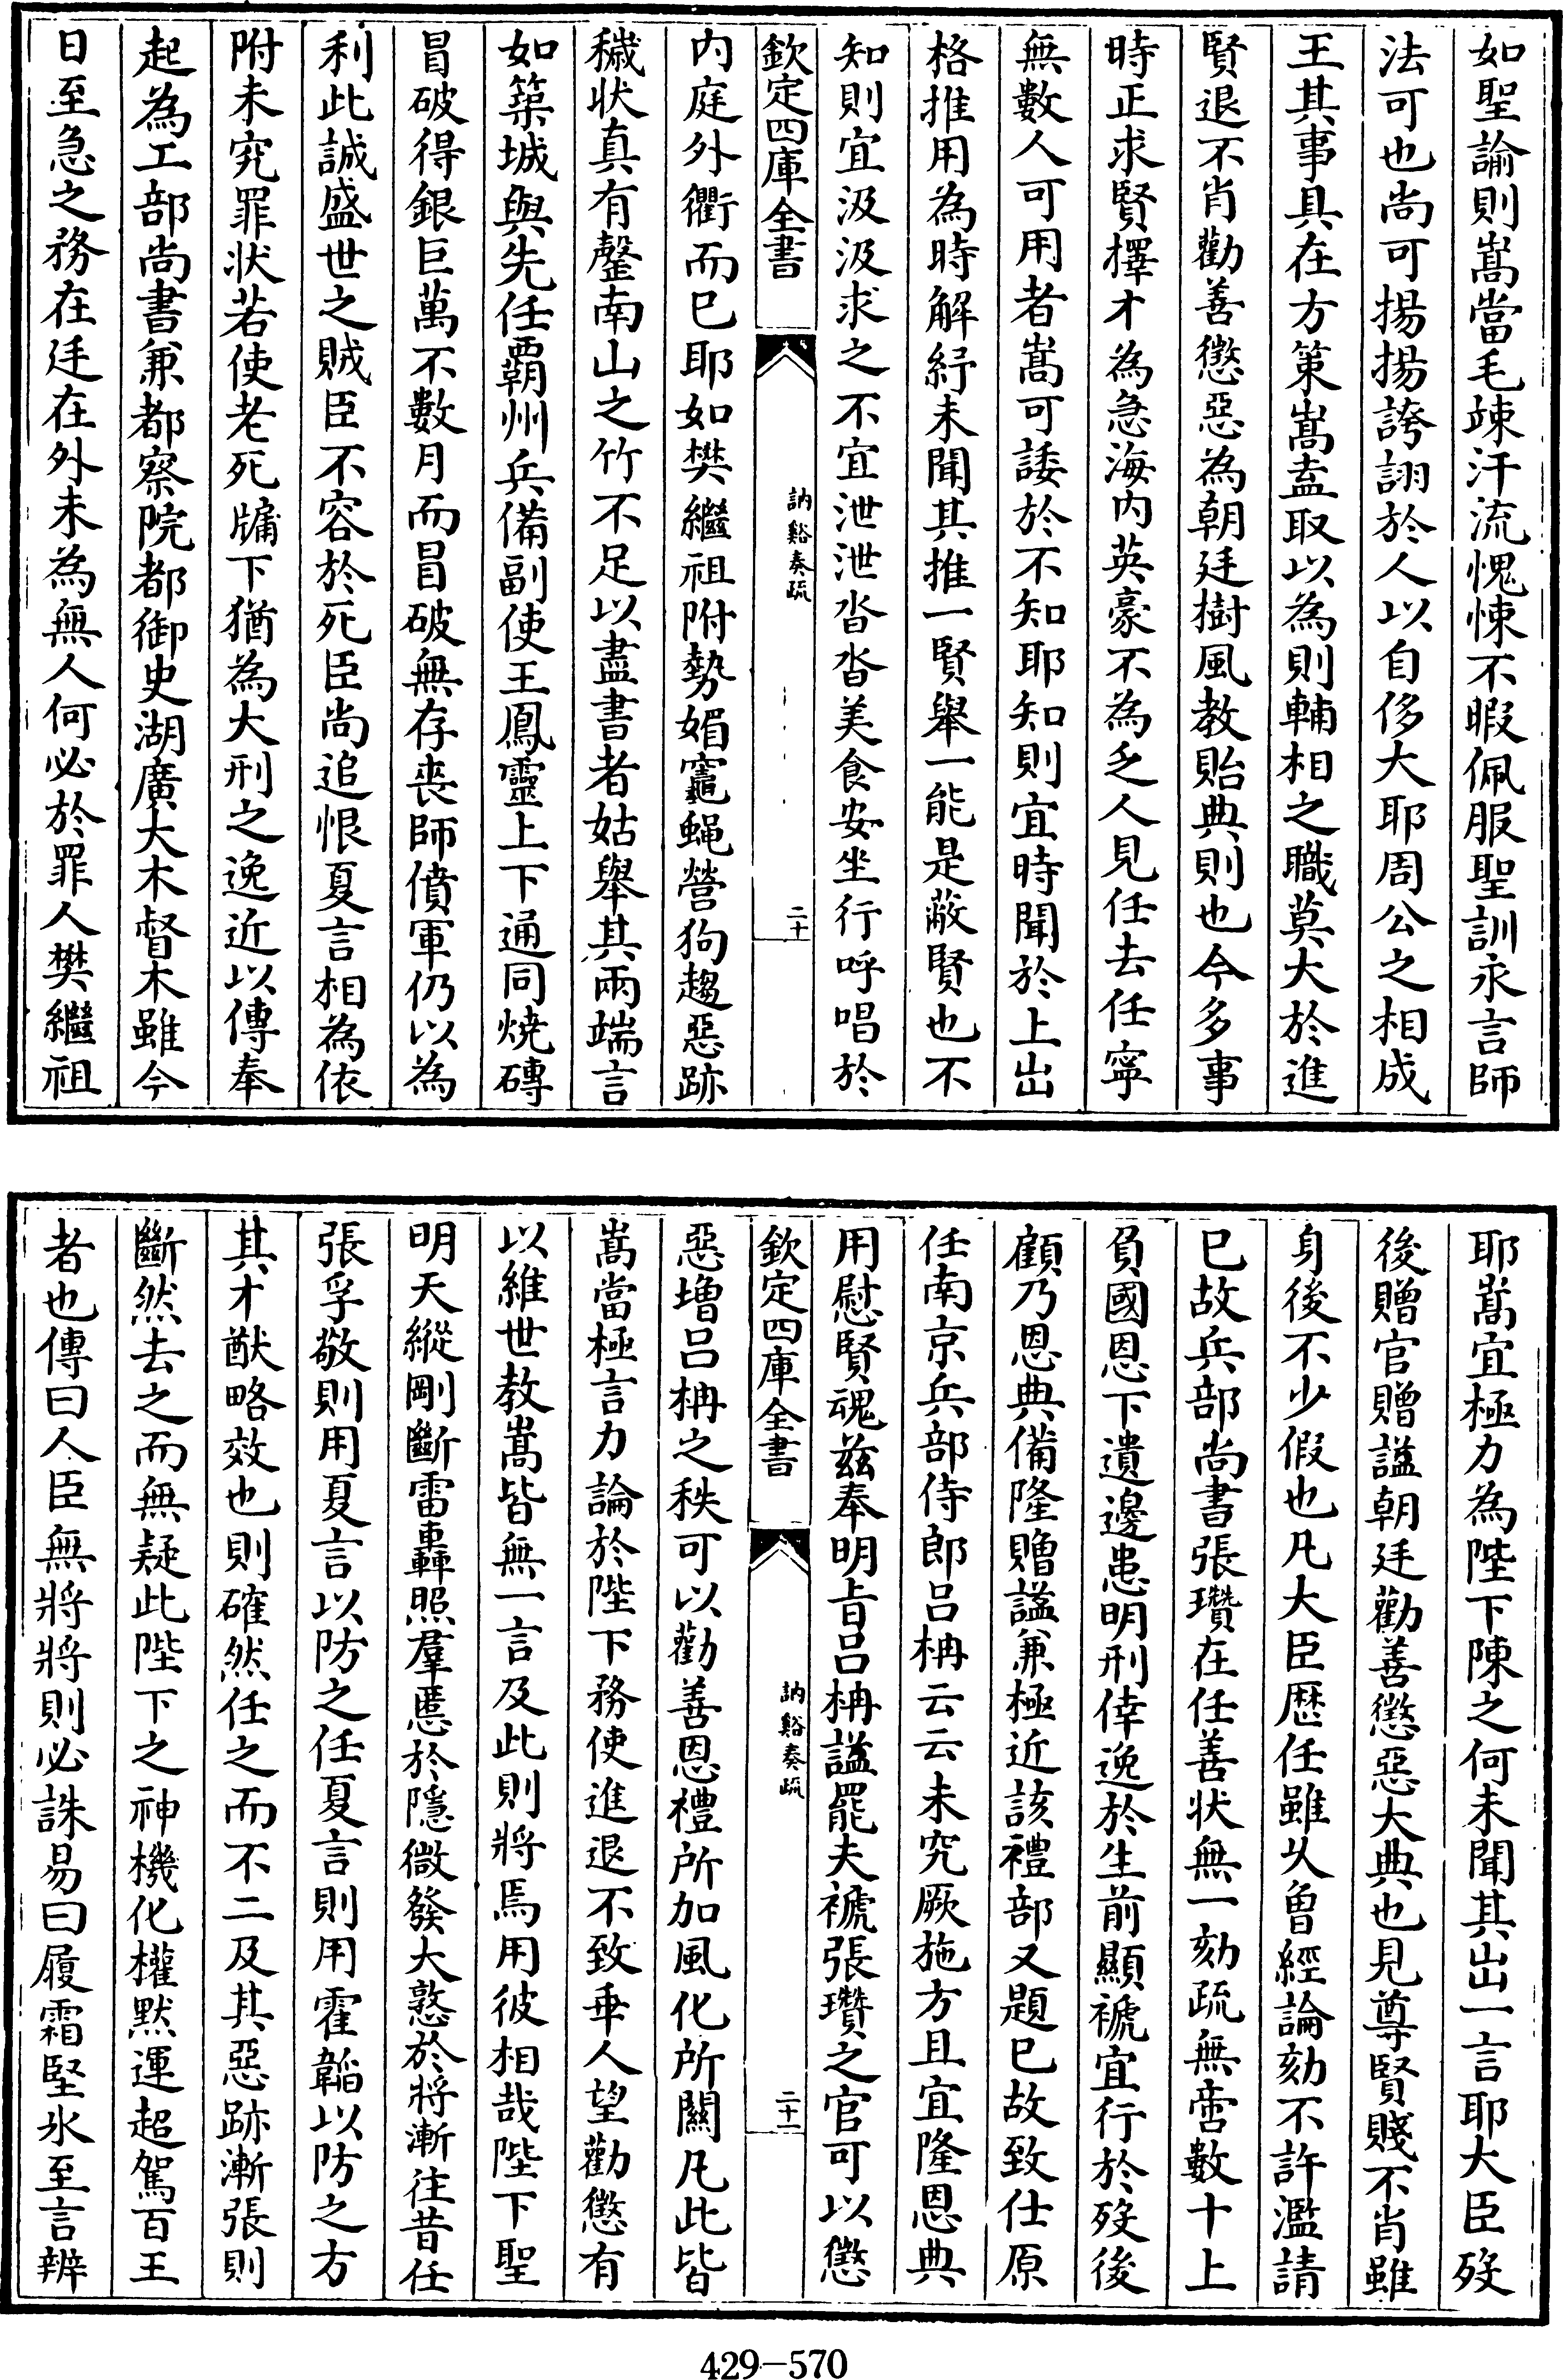 如聖諭則嵩當毛竦汗流愧悚不暇佩服聖訓永言師
法可也尚可揚揚誇詡於人以自侈大耶周公之相成
王其事具在方策嵩盍取以為則輔相之職莫大於進
賢退不肖勸善懲惡為朝廷樹風教貽典則也今多事
時正求賢擇才為急海內英豪不為乏人見任去任寧
無數人可用者嵩可諉於不知耶知則宜時聞於上出
格推用為時解紓未聞其推一賢舉一能是蔽賢也不
知則宜汲汲求之不宜泄泄沓沓美食安坐行呼唱於
欽定四庫全書
訥谿奏疏
二十
內庭外衢而已耶如樊繼祖附勢媚竈蠅營狗趨惡跡
穢狀真有罄南山之竹不足以盡書者姑舉其兩端言
如築城與先任覇州兵備副使王鳳靈上下通同燒磚
冒破得銀巨萬不數月而冒破無存喪師僨軍仍以為
利此誠盛世之賊臣不容於死臣尚追恨夏言相為依
附未究罪狀若使老死牖下猶為大刑之逸近以傳奉
起為工部尚書兼都察院都御史湖廣大木督木雖今
日至急之務在廷在外未為無人何必於罪人樊繼祖
耶嵩宜極力為陛下陳之何未聞其出一言耶大臣歿
後贈官贈謚朝廷勸善懲惡大典也見尊賢賤不肖雖
身後不少假也凡大臣歴任雖乆曽經論劾不許濫請
已故兵部尚書張瓚在任善狀無一劾疏無啻數十上
負國恩下遺邊患明刑倖逸於生前顯褫宜行於歿後
顧乃恩典備隆贈謚兼極近該禮部又題已故致仕原
任南京兵部侍郎呂柟云云未究厥施方且宜隆恩典
用慰賢魂兹奉明旨呂柟謚罷夫褫張瓚之官可以懲
欽定四庫全書
訥谿奏疏
二十一
惡增呂柟之秩可以勸善恩禮所加風化所關凡此皆
嵩當極言力論於陛下務使進退不致乖人望勸懲有
以維世教嵩皆無一言及此則將焉用彼相哉陛下聖
明天縱剛斷雷轟照羣慝於隱微發大憝於將漸往昔任
張孚敬則用夏言以防之任夏言則用霍韜以防之方
其才猷略效也則確然任之而不二及其惡跡漸張則
斷然去之而無疑此陛下之神機化權默運超駕百王
者也傳曰人臣無將將則必誅易曰履霜堅氷至言辨
429-570